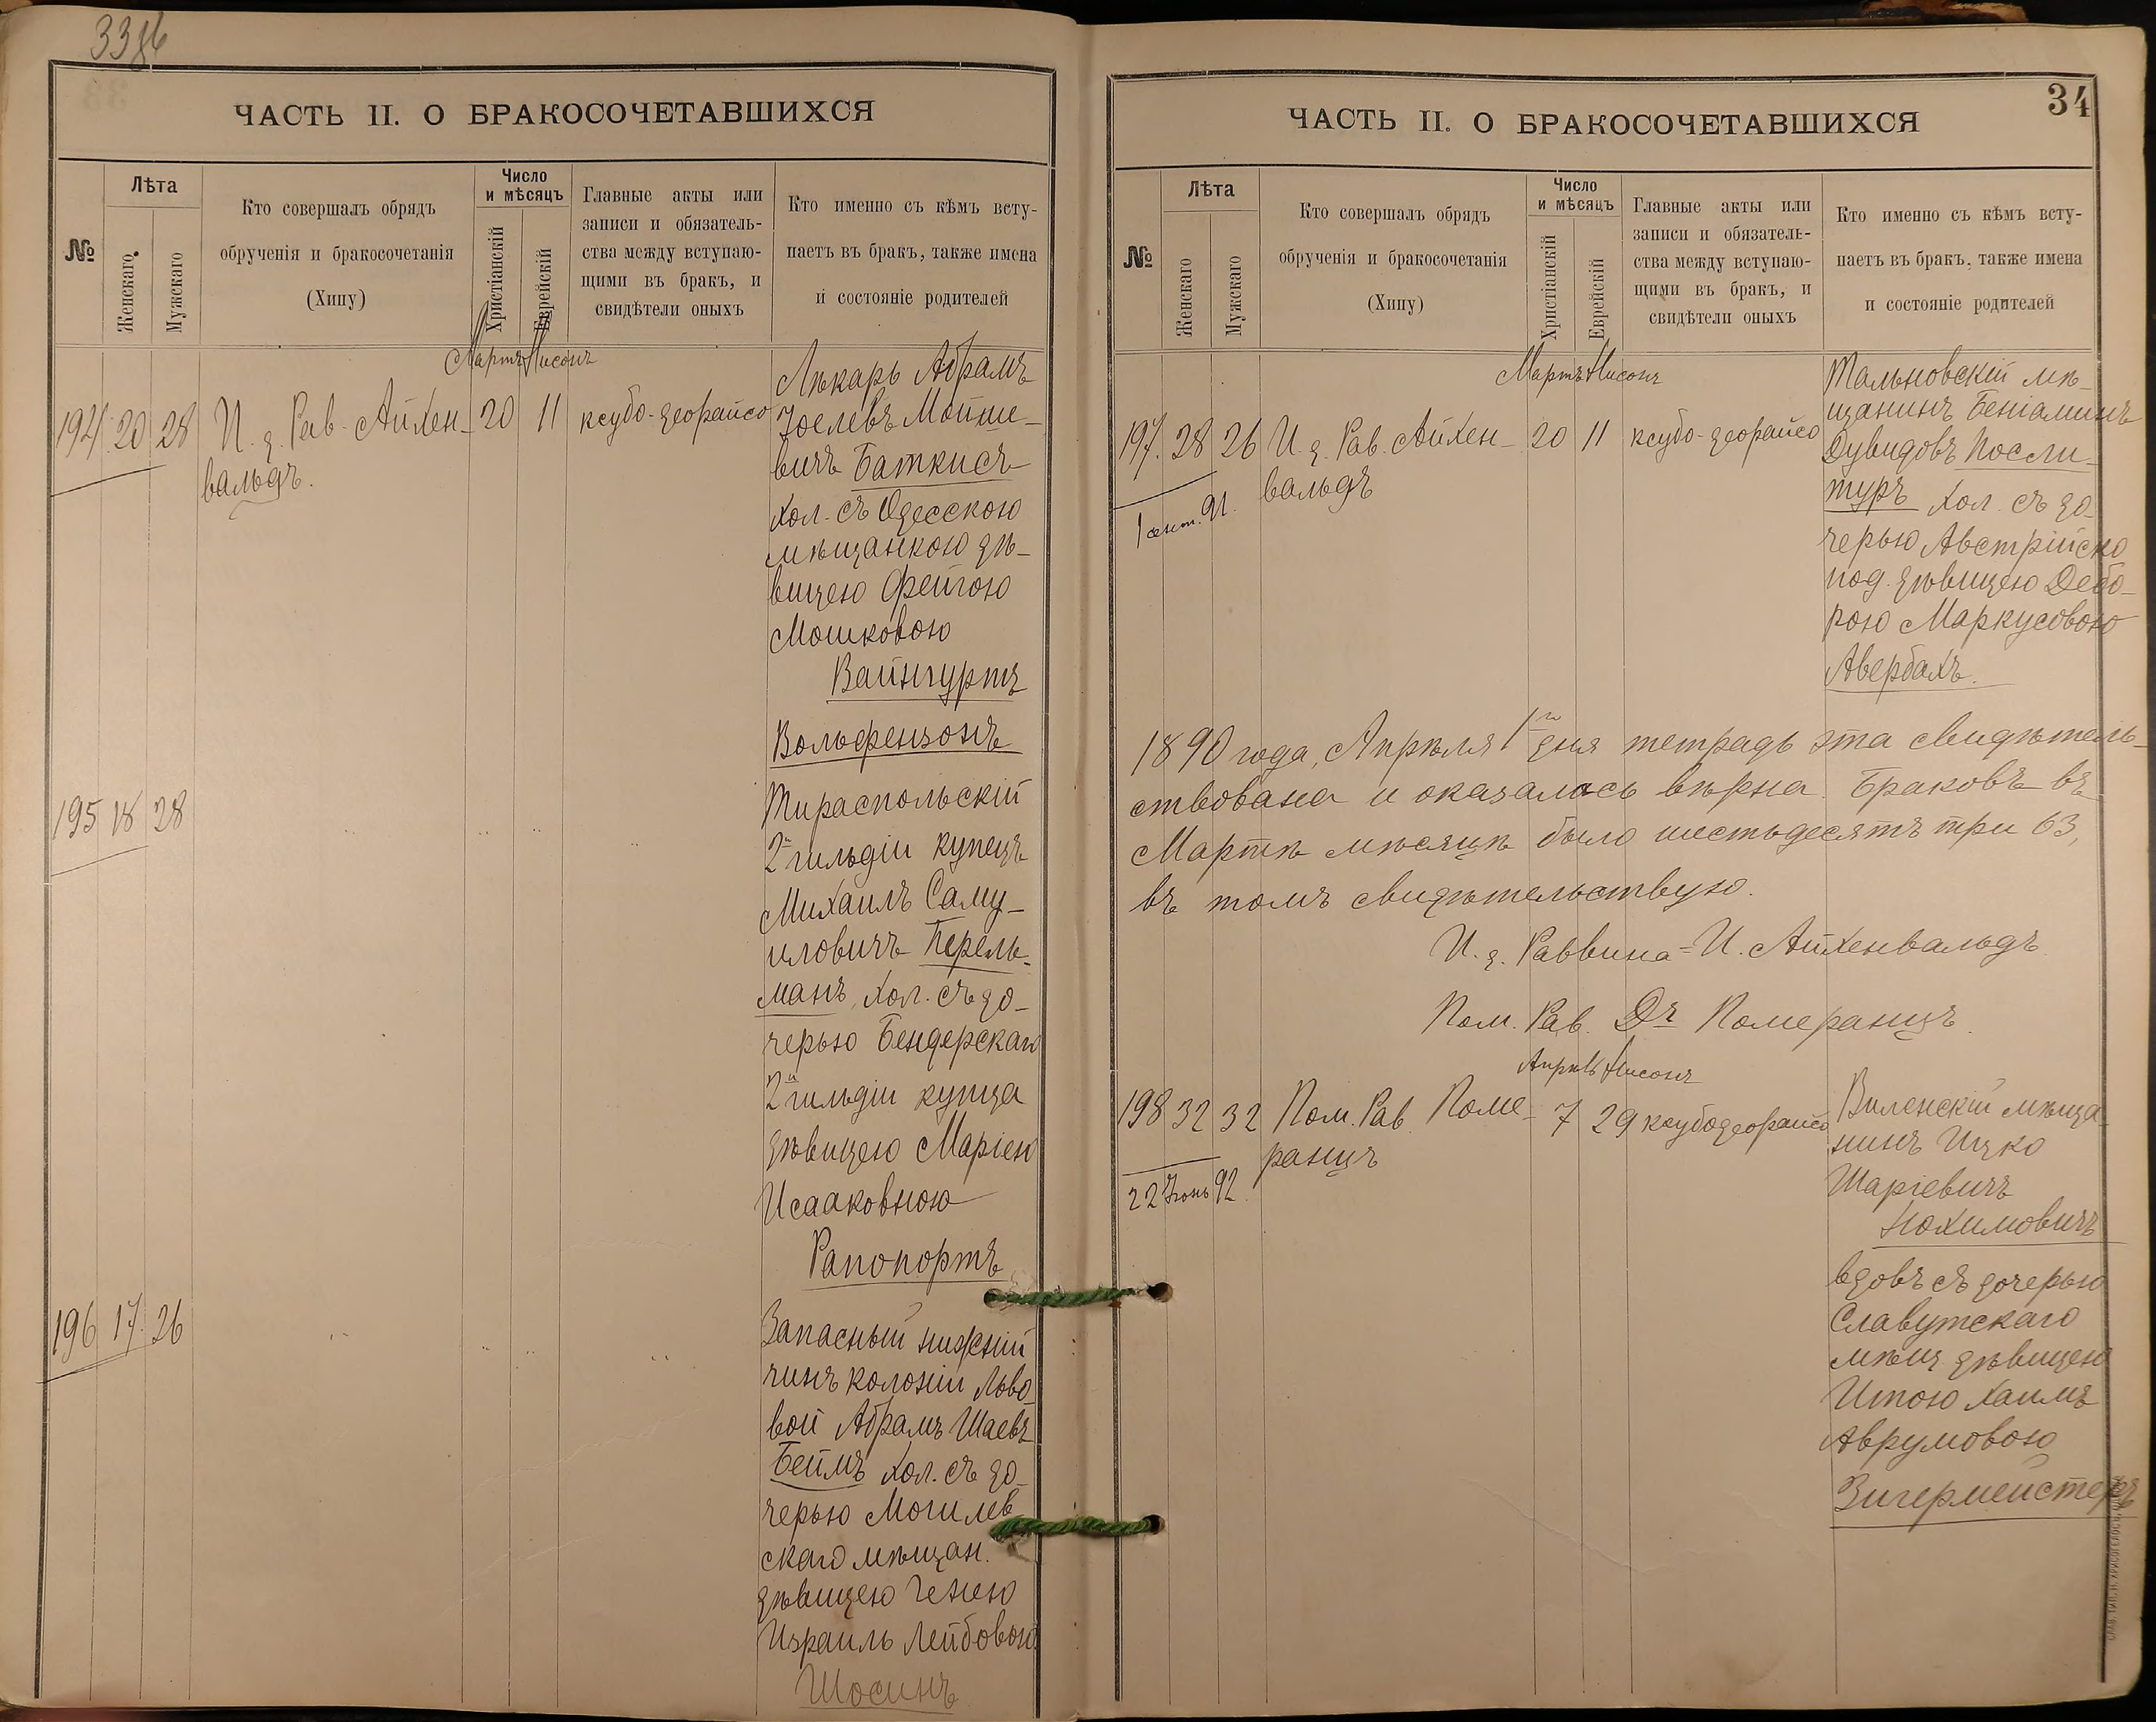 33об
ЧАСТЬ II. О БРАКОСОЧЕТАВШИХСЯ
№
Лѣта
Женскаго
Мужскаго
Кто совершалъ обрядъ
обрученія и бракосочетанія
(Хипу)
Число
и мѣсяцъ
Христіанскій
Еврейскій
Главные акты или
записи и обязатель-
ства между вступаю-
щими въ бракъ, и
свидѣтели оныхъ
Кто именно съ кѣмъ всту-
паетъ въ бракъ, также имена
и состояніе родителей
Мартъ Нисонъ
194. 20 28 И. д. Рав. Айхен- 20 11 ксубо-деорайсо
вальдъ.
Лѣкарь Абрамъ
Іоелевъ Мойше-
вичъ Баткисъ
хол. съ Одесскою
мѣщанкою дѣ-
вицею Фейгою
Мошковою
Вайнгуртъ
Вольфензонъ
195 18 28 .. .. .. ..
Тираспольскій
2й гильдіи купецъ
Михаилъ Саму-
иловичъ Перель-
манъ, хол. съ до-
черью Бендерскаго
2й гильдіи купца
дѣвицею Маріею
Исааковною
Рапопортъ
196 17. 26 .. .. .. ..
Запасный нижній
чинъ колоніи Льво
вой Абрамъ Шаевъ
Беймъ хол. съ до-
черью Могилев
скаго мѣщан.
дѣвицею Генею
Израиль Лейбовою
Шосинъ
34
ЧАСТЬ II. О БРАКОСОЧЕТАВШИХСЯ
№
Лѣта
Женскаго
Мужскаго
Кто совершалъ обрядъ
обрученія и бракосочетанія
(Хипу)
Число
и мѣсяцъ
Христіанскій
Еврейскій
Главные акты или
записи и обязатель-
ства между вступаю-
щими въ бракъ, и
свидѣтели оныхъ
Кто именно съ кѣмъ всту-
паетъ въ бракъ, также имена
и состояніе родителей
Мартъ Нисонъ
197. 28 26 И. д. Рав. Айхен- 20 11 ксубо-деорайсо
вальдъ
1 сент. 91.
Тальновскій мѣ-
щанинъ Беніаминъ
Дувидовъ Посли-
туръ хол. съ до-
черью Австрійско
под. дѣвицею Дебо-
рою Маркусовою
Авербахъ.
1890 года, Апрѣля 1го дня тетрадь эта свидѣтель-
ствована и оказалась вѣрна. Браковъ въ
Мартѣ мѣсяцѣ было шестьдесятъ три 63,
въ томъ свидѣтельствую.
И. д. Раввина - И. Айхенвальдъ
Пом. Рав. Dr Померанцъ.
Апрѣль Нисонъ
198 32 32 Пом. Рав. Поме- 7 29 ксубодеорайсо
ранцъ
22 Іюнь 92.
Виленскій мѣща-
нинъ Ицко
Шаріевичъ
Нохимовичъ
вдовъ съ дочерью
Славутскаго
мѣщ. дѣвицею
Итою Хаимъ
Аврумовою
Зигермейстеръ